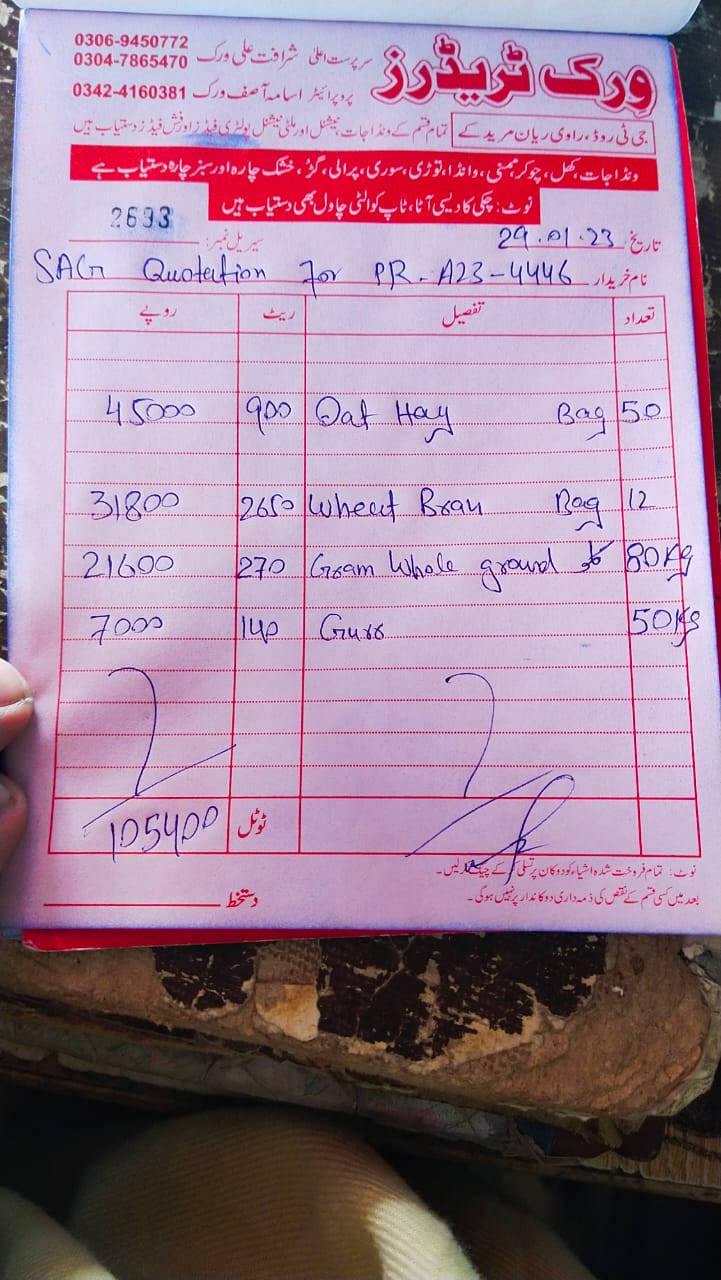 0306-9450772
0304-7865470
سرپرست اعلیٰ شرافت علی ورک
ورک ٹریڈرز
0342-4160381
پروپرائیٹر اسامہ آصف ورک
جی ٹی روڈ، راوی ریان مریدکے
تمام قسم کے ونڈا جات، نیشنل اور ملٹی نیشنل پولٹری فیڈز اور فش فیڈز دستیاب ہیں
ونڈا جات، کھل، چوکر، ممنی، وانڈا، توڑی، سوری، پرالی، گڑ، خشک چارہ اور سبز چارہ دستیاب ہے
نوٹ: چکی کا دیسی آٹا، ٹاپ کوالٹی چاول بھی دستیاب ہیں
تاریخ 29.01.23 سیریل نمبر: 2693
نام خریدار SAG Quotation for PR-A23-4446
تعداد تفصیل ریٹ روپے
45000 900 Oat Hay Bag 50
31800 2650 Wheat Bran Bag 12
21600 270 Gram Whole ground 80Kg
7000 140 Gurr 50Kg
105400 ٹوٹل
نوٹ: تمام فروخت شدہ اشیاء کو دوکان پر تسلی کر کے چیک کر لیں۔
بعد میں کسی قسم کے نقص کی ذمہ داری دوکاندار پر نہیں ہوگی۔
دستخط